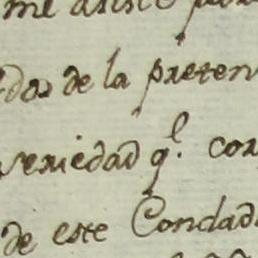 me
de la preten
veriedad q.l con
de este Condad